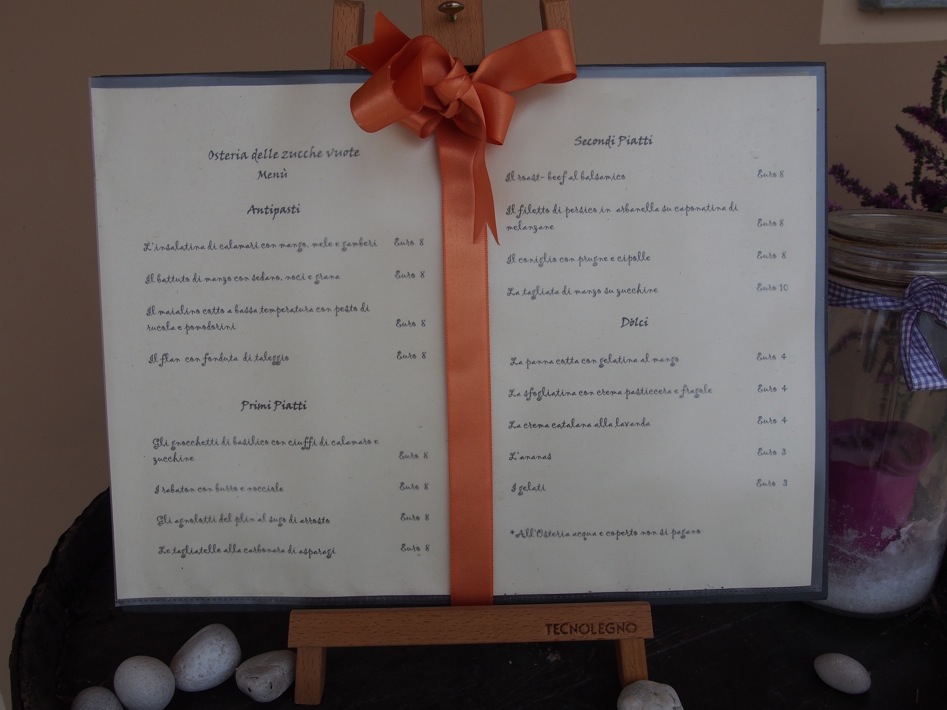 Osteria delle zucche vuote
Menù
Antipasti
L'insalatina di calamari con mango, mele e gamberi Euro 8
Il battuto di manzo con sedano, noci e grana Euro 8
Il maialino cotto a bassa temperatura con pesto di
rucola e pomodorini Euro 8
Il flan con fonduta di taleggio Euro 8
Primi Piatti
Gli gnocchetti di basilico con ciuffi di calamaro e
zucchine Euro 8
I rabaton con burro e nocciole Euro 8
Gli agnolotti del plin al sugo di arrosto Euro 8
Le tagliatelle alla carbonara di asparagi Euro 8
Secondi Piatti
Il roast- beef al balsamico Euro 8
Il filetto di persico in arbanella su caponatina di
melanzane Euro 8
Il coniglio con prugne e cipolle Euro 8
La tagliata di manzo su zucchine Euro 10
Dolci
La panna cotta con gelatina al mango Euro 4
La sfogliatina con crema pasticcera e fragole Euro 4
La crema catalana alla lavanda Euro 4
L'ananas Euro 3
I gelati Euro 3
*All'Osteria acqua e coperto non si pagano
TECNOLEGNO